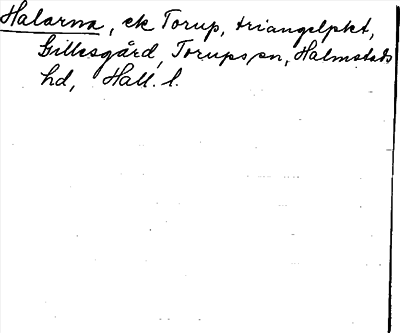 Halarna, ek Torup, triangelpkt,
Gillesgård, Torups sn, Halmstads
hd, Hall. l.